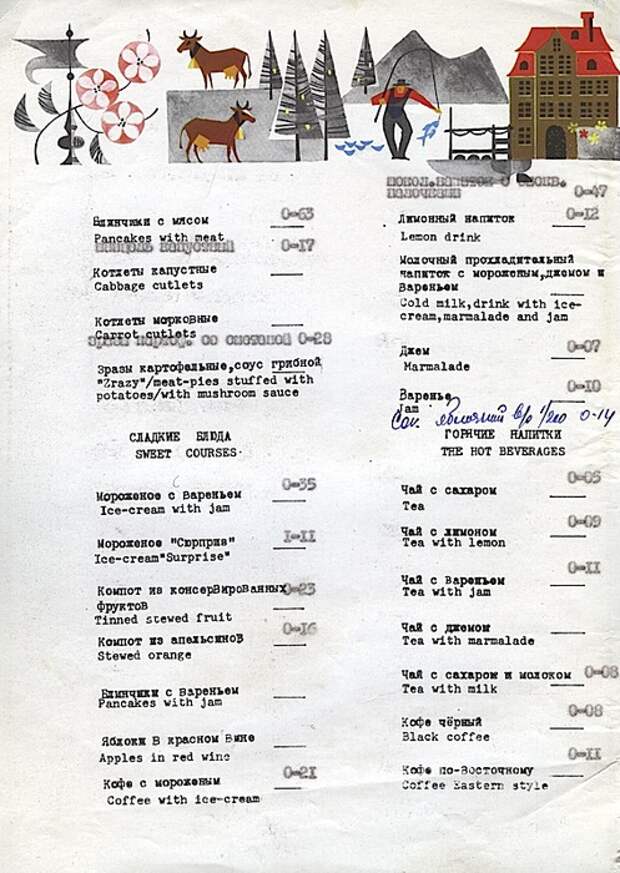 Блинчики с мясом 0-63
Pancakes with meat
0-17
Котлеты капустные
Cabbage cutlets
Котлеты морковные
Carrot cutlets
со сметаной 0-28
Зразы картофельные,соус грибной
"Zrazy"/meat-pies stuffed with
potatoes/with mushroom sauce
СЛАДКИЕ БЛЮДА
SWEET COURSES
Мороженое с вареньем 0-35
Ice-cream with jam
Мороженое "Сюрприз" 1-11
Ice-cream"Surprise"
Компот из консервированных 0-23
фруктов
Tinned stewed fruit
Компот из апельсинов 0-16
Stewed orange
Блинчики с вареньем
Pancakes with jam
Яблоки в красном вине
Apples in red wine
Кофе с мороженым 0-21
Coffee with ice-cream
0-47
Лимонный напиток 0-12
Lemon drink
Молочный прохладительный
напиток с мороженым,джемом и
вареньем
Cold milk,drink with ice-
cream,marmalade and jam
Джем 0-07
Marmalade
Варенье 0-10
Jam
Сок яблочный 0-14
ГОРЯЧИЕ НАПИТКИ
THE HOT BEVERAGES
Чай с сахаром 0-05
Tea
Чай с лимоном 0-09
Tea with lemon
Чай с вареньем 0-11
Tea with jam
Чай с джемом
Tea with marmalade
Чай с сахаром и молоком 0-08
Tea with milk
Кофе чёрный 0-08
Black coffee
Кофе по-восточному 0-11
Coffee Eastern style